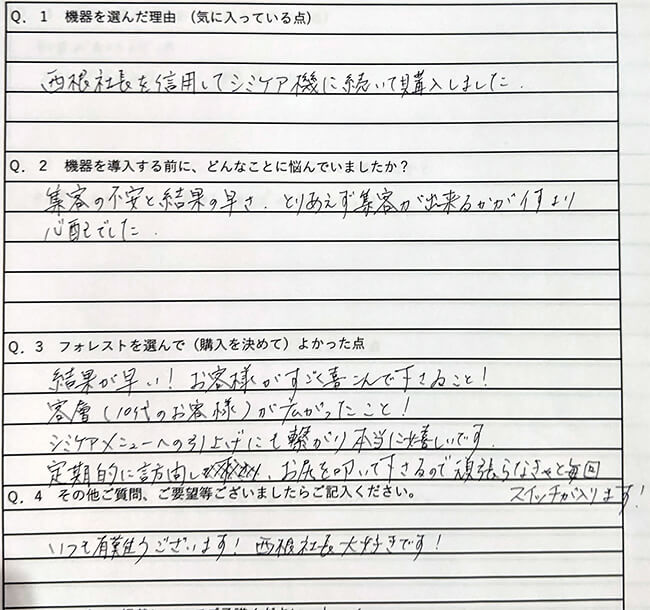 Q. 1 機器を選んだ理由 （気に入っている点）
西根社長を信用してシミケア機に続いて購入しました.
Q. 2 機器を導入する前に、どんなことに悩んでいましたか？
集客の不安と結果の早さ. とりあえず集客が出来るかが何より
心配でした.
Q. 3 フォレストを選んで（購入を決めて）よかった点
結果が早い! お客様がすごく喜こんで下さること!
客層（10代のお客様）が広がったこと!
シミケアメニューへの引上げにも繋がり本当に嬉しいです.
定期的に訪問し、お尻を叩いて下さるので頑張らなきゃと毎回
スイッチが入ります!
Q. 4 その他ご質問、ご要望等ございましたらご記入ください。
いつも有難うございます! 西根社長大好きです!